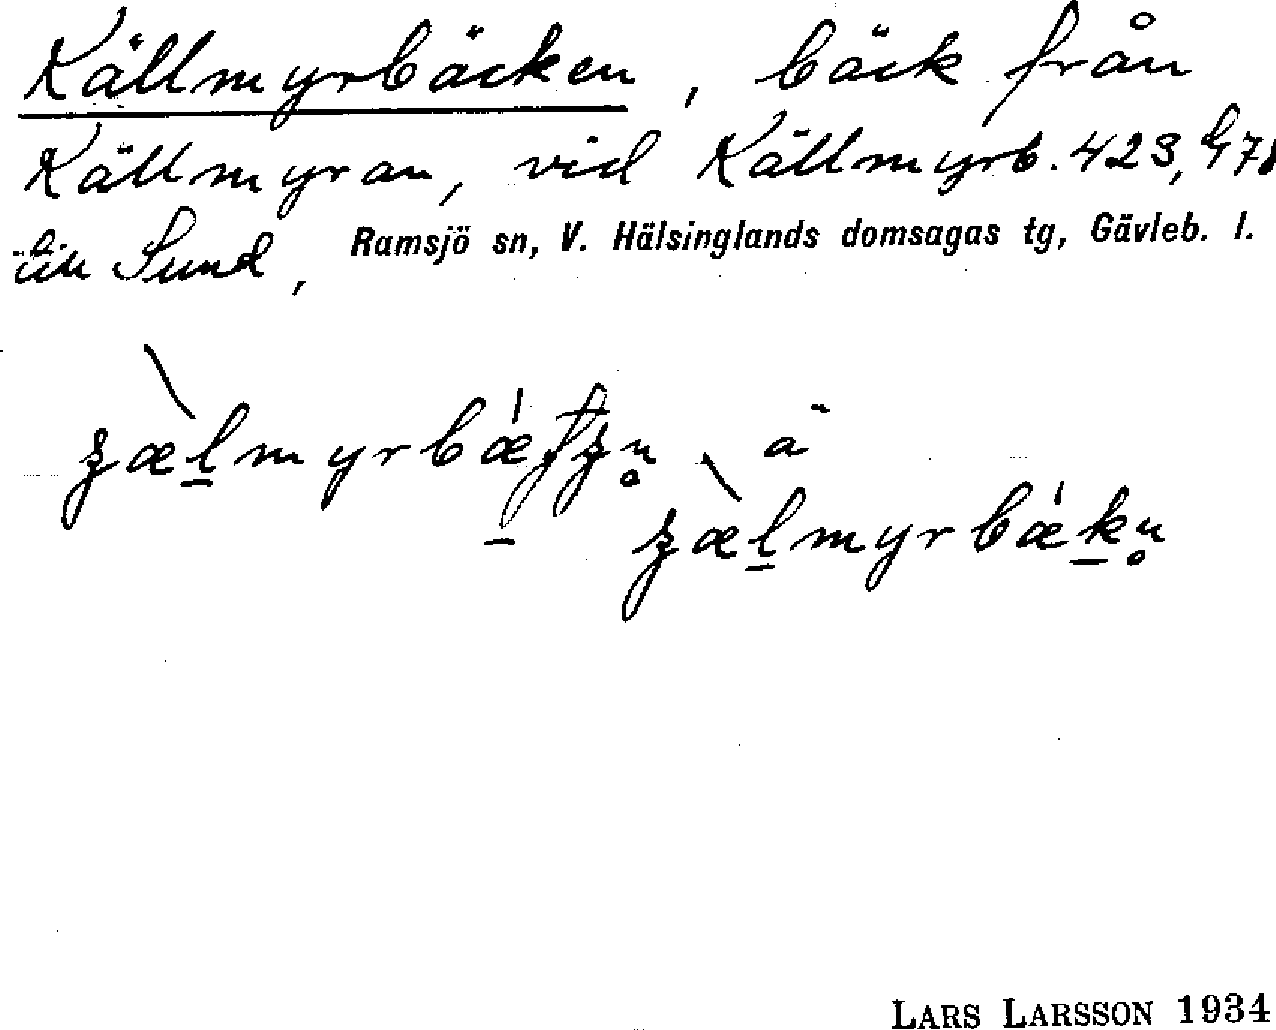 Källmyrbäcken, bäck från
Källmyran, vid Källmyrb. 423,
till Sund, Ramsjö sn, V. Hälsinglands domsagas tg, Gävleb. l.
ä
LARS LARSSON 1934